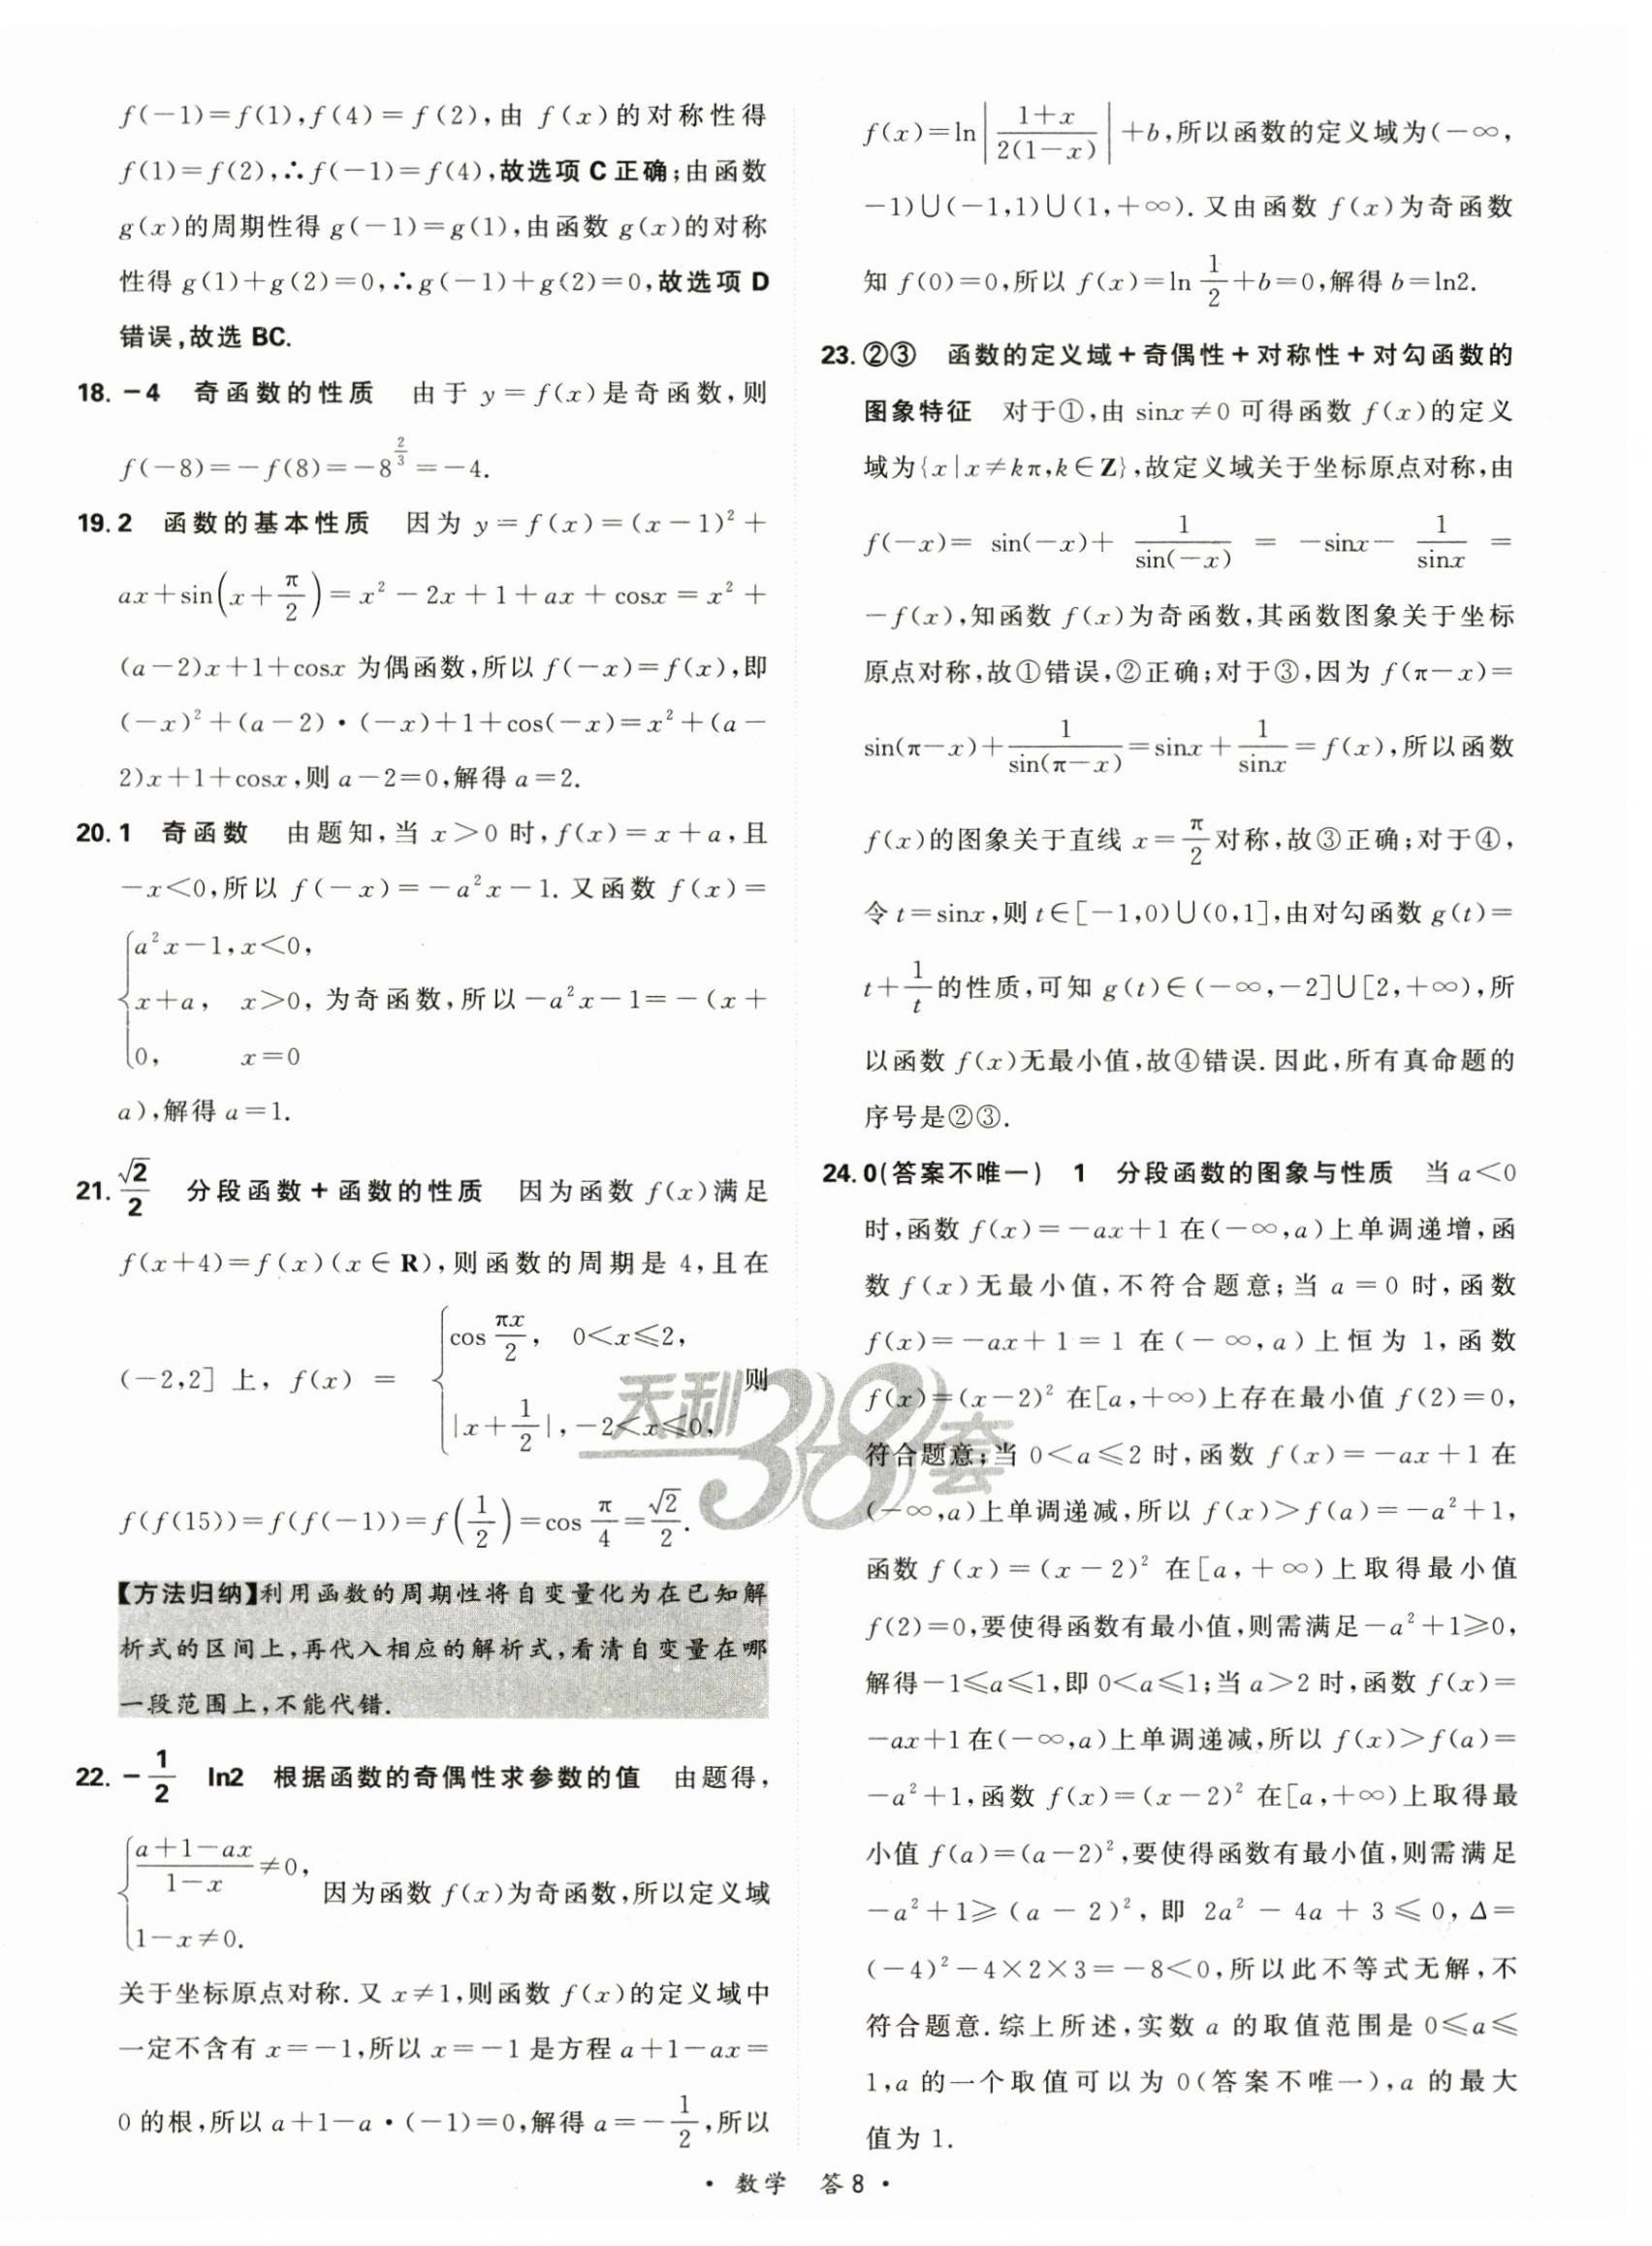 f(-1)=f(1),f(4)=f(2),由 f(x)的对称性得
f(1)=f(2),∴f(-1)=f(4),故选项C正确;由函数
g(x)的周期性得 g(-1)=g(1),由函数 g(x)的对称
性得 g(1)+g(2)=0,∴g(-1)+g(2)=0,故选项 D
错误,故选 BC.
18. -4 奇函数的性质 由于 y=f(x)是奇函数,则
f(-8)=-f(8)=-8^{2/3}=-4.
19. 2 函数的基本性质 因为 y=f(x)=(x-1)²+
ax+sin(x+π/2)=x²-2x+1+ax+cosx=x²+
(a-2)x+1+cosx 为偶函数,所以 f(-x)=f(x),即
(-x)²+(a-2)·(-x)+1+cos(-x)=x²+(a-
2)x+1+cosx,则 a-2=0,解得 a=2.
20. 1 奇函数 由题知,当 x>0 时,f(x)=x+a,且
-x<0,所以 f(-x)=-a²x-1. 又函数 f(x)=
{a²x-1,x<0,
x+a, x>0, 为奇函数,所以-a²x-1=-(x+
0, x=0
a),解得 a=1.
21. √2/2 分段函数+函数的性质 因为函数 f(x)满足
f(x+4)=f(x)(x∈R),则函数的周期是 4,且在
(-2,2]上,f(x)= {cos πx/2, 0<x≤2, 则
|x+1/2|,-2<x≤0,
f(f(15))=f(f(-1))=f(1/2)=cos π/4=√2/2.
【方法归纳】利用函数的周期性将自变量化为在已知解
析式的区间上,再代入相应的解析式,看清自变量在哪
一段范围上,不能代错.
22. -1/2 ln2 根据函数的奇偶性求参数的值 由题得,
{(a+1-ax)/(1-x)≠0,
因为函数 f(x)为奇函数,所以定义域
1-x≠0.
关于坐标原点对称. 又 x≠1,则函数 f(x)的定义域中
一定不含有 x=-1,所以 x=-1 是方程 a+1-ax=
0 的根,所以 a+1-a·(-1)=0,解得 a=-1/2,所以
f(x)=ln|(1+x)/(2(1-x))|+b,所以函数的定义域为(-∞,
-1)∪(-1,1)∪(1,+∞). 又由函数 f(x)为奇函数
知 f(0)=0,所以 f(x)=ln 1/2+b=0,解得 b=ln2.
23. ②③ 函数的定义域+奇偶性+对称性+对勾函数的
图象特征 对于①,由 sinx≠0 可得函数 f(x)的定义
域为{x|x≠kπ,k∈Z},故定义域关于坐标原点对称,由
f(-x)= sin(-x)+ 1/sin(-x) = -sinx- 1/sinx =
-f(x),知函数 f(x)为奇函数,其函数图象关于坐标
原点对称,故①错误,②正确;对于③,因为 f(π-x)=
sin(π-x)+1/sin(π-x)=sinx+1/sinx=f(x),所以函数
f(x)的图象关于直线 x=π/2对称,故③正确;对于④,
令 t=sinx,则 t∈[-1,0)∪(0,1],由对勾函数 g(t)=
t+1/t的性质,可知 g(t)∈(-∞,-2]∪[2,+∞),所
以函数 f(x)无最小值,故④错误. 因此,所有真命题的
序号是②③.
24. 0(答案不唯一) 1 分段函数的图象与性质 当 a<0
时,函数 f(x)=-ax+1 在(-∞,a)上单调递增,函
数 f(x)无最小值,不符合题意;当 a=0 时,函数
f(x)=-ax+1=1 在(-∞,a)上恒为 1,函数
f(x)=(x-2)² 在[a,+∞)上存在最小值 f(2)=0,
符合题意;当 0<a≤2 时,函数 f(x)=-ax+1 在
(-∞,a)上单调递减,所以 f(x)>f(a)=-a²+1,
函数 f(x)=(x-2)² 在[a,+∞)上取得最小值
f(2)=0,要使得函数有最小值,则需满足-a²+1≥0,
解得-1≤a≤1,即 0<a≤1;当 a>2 时,函数 f(x)=
-ax+1 在(-∞,a)上单调递减,所以 f(x)>f(a)=
-a²+1,函数 f(x)=(x-2)² 在[a,+∞)上取得最
小值 f(a)=(a-2)²,要使得函数有最小值,则需满足
-a²+1≥(a-2)²,即 2a²-4a+3≤0,Δ=
(-4)²-4×2×3=-8<0,所以此不等式无解,不
符合题意. 综上所述,实数 a 的取值范围是 0≤a≤
1,a 的一个取值可以为 0(答案不唯一),a 的最大
值为 1.
天利38套
·数学 答8·